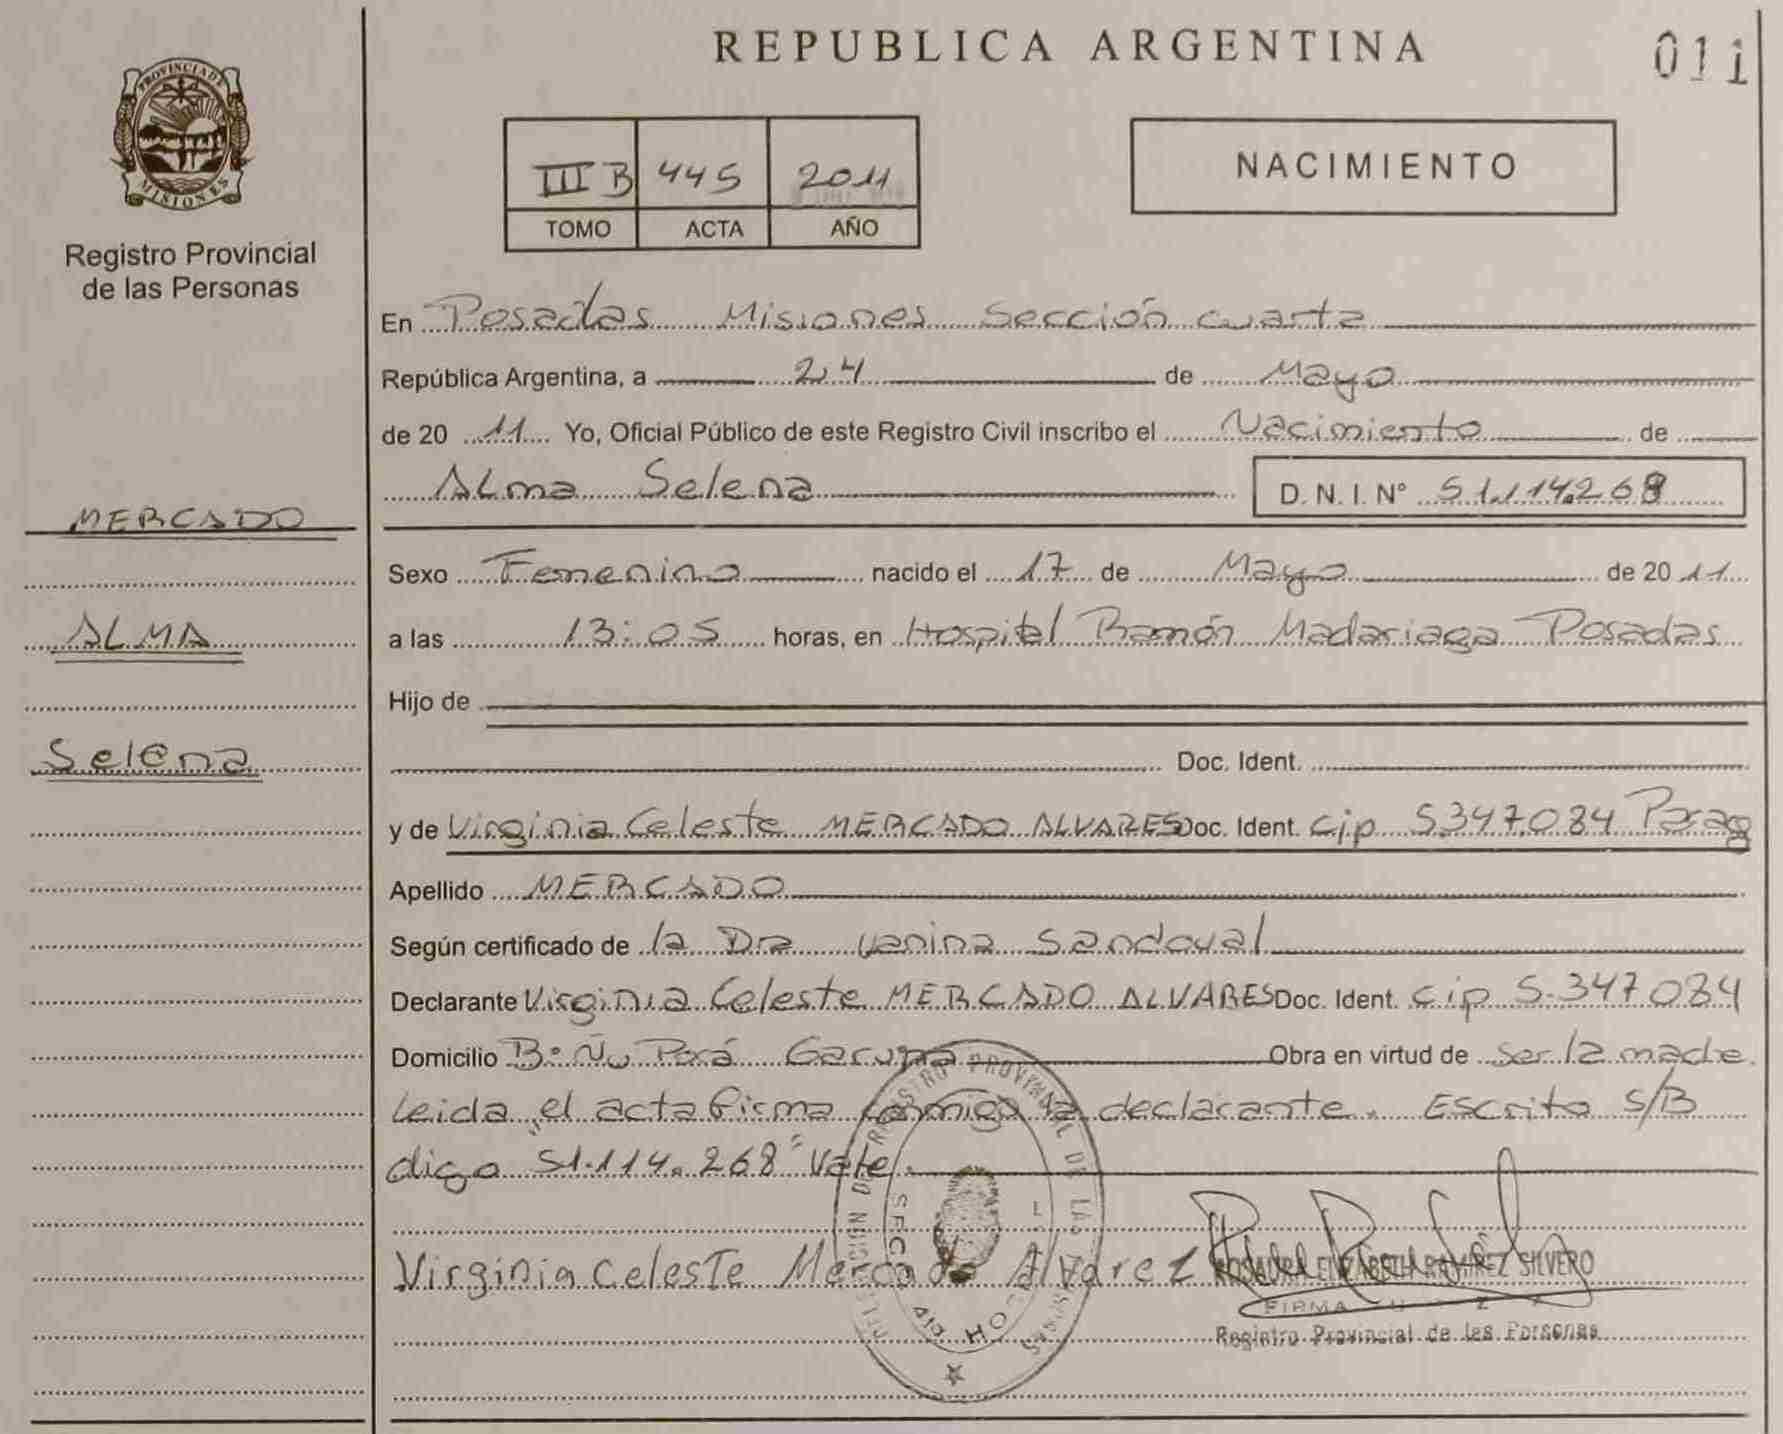 REPUBLICA ARGENTINA
011
PROVINCIA DE MISIONES
Registro Provincial
de las Personas
III B 445 2011
TOMO ACTA AÑO
NACIMIENTO
En Posadas Misiones Sección cuarta
República Argentina, a 24 de Mayo
de 20 11 Yo, Oficial Público de este Registro Civil inscribo el Nacimiento de
Alma Selena D. N. I. N° 51.114.268
MERCADO
ALMA
Selena
Sexo Femenino nacido el 17 de Mayo de 20 11
a las 13:05 horas, en Hospital Ramón Madariaga Posadas
Hijo de
Doc. Ident.
y de Virginia Celeste MERCADO ALVARES Doc. Ident. cip 5347.084 Parag
Apellido MERCADO
Según certificado de la Dra Vanina Sandoval
Declarante Virginia Celeste MERCADO ALVARES Doc. Ident. cip 5.347084
Domicilio B° Ñu Porá Garupa Obra en virtud de ser la madre.
Leida el acta firma conmigo la declarante. Escrito S/B
digo "51.114.268" Vale.
Virginia Celeste Mercado Alvarez
ROSAURA ELIZABETH RAMIREZ SILVERO
FIRMA
Registro Provincial de las Personas
REGISTRO PROVINCIAL DE LAS PERSONAS